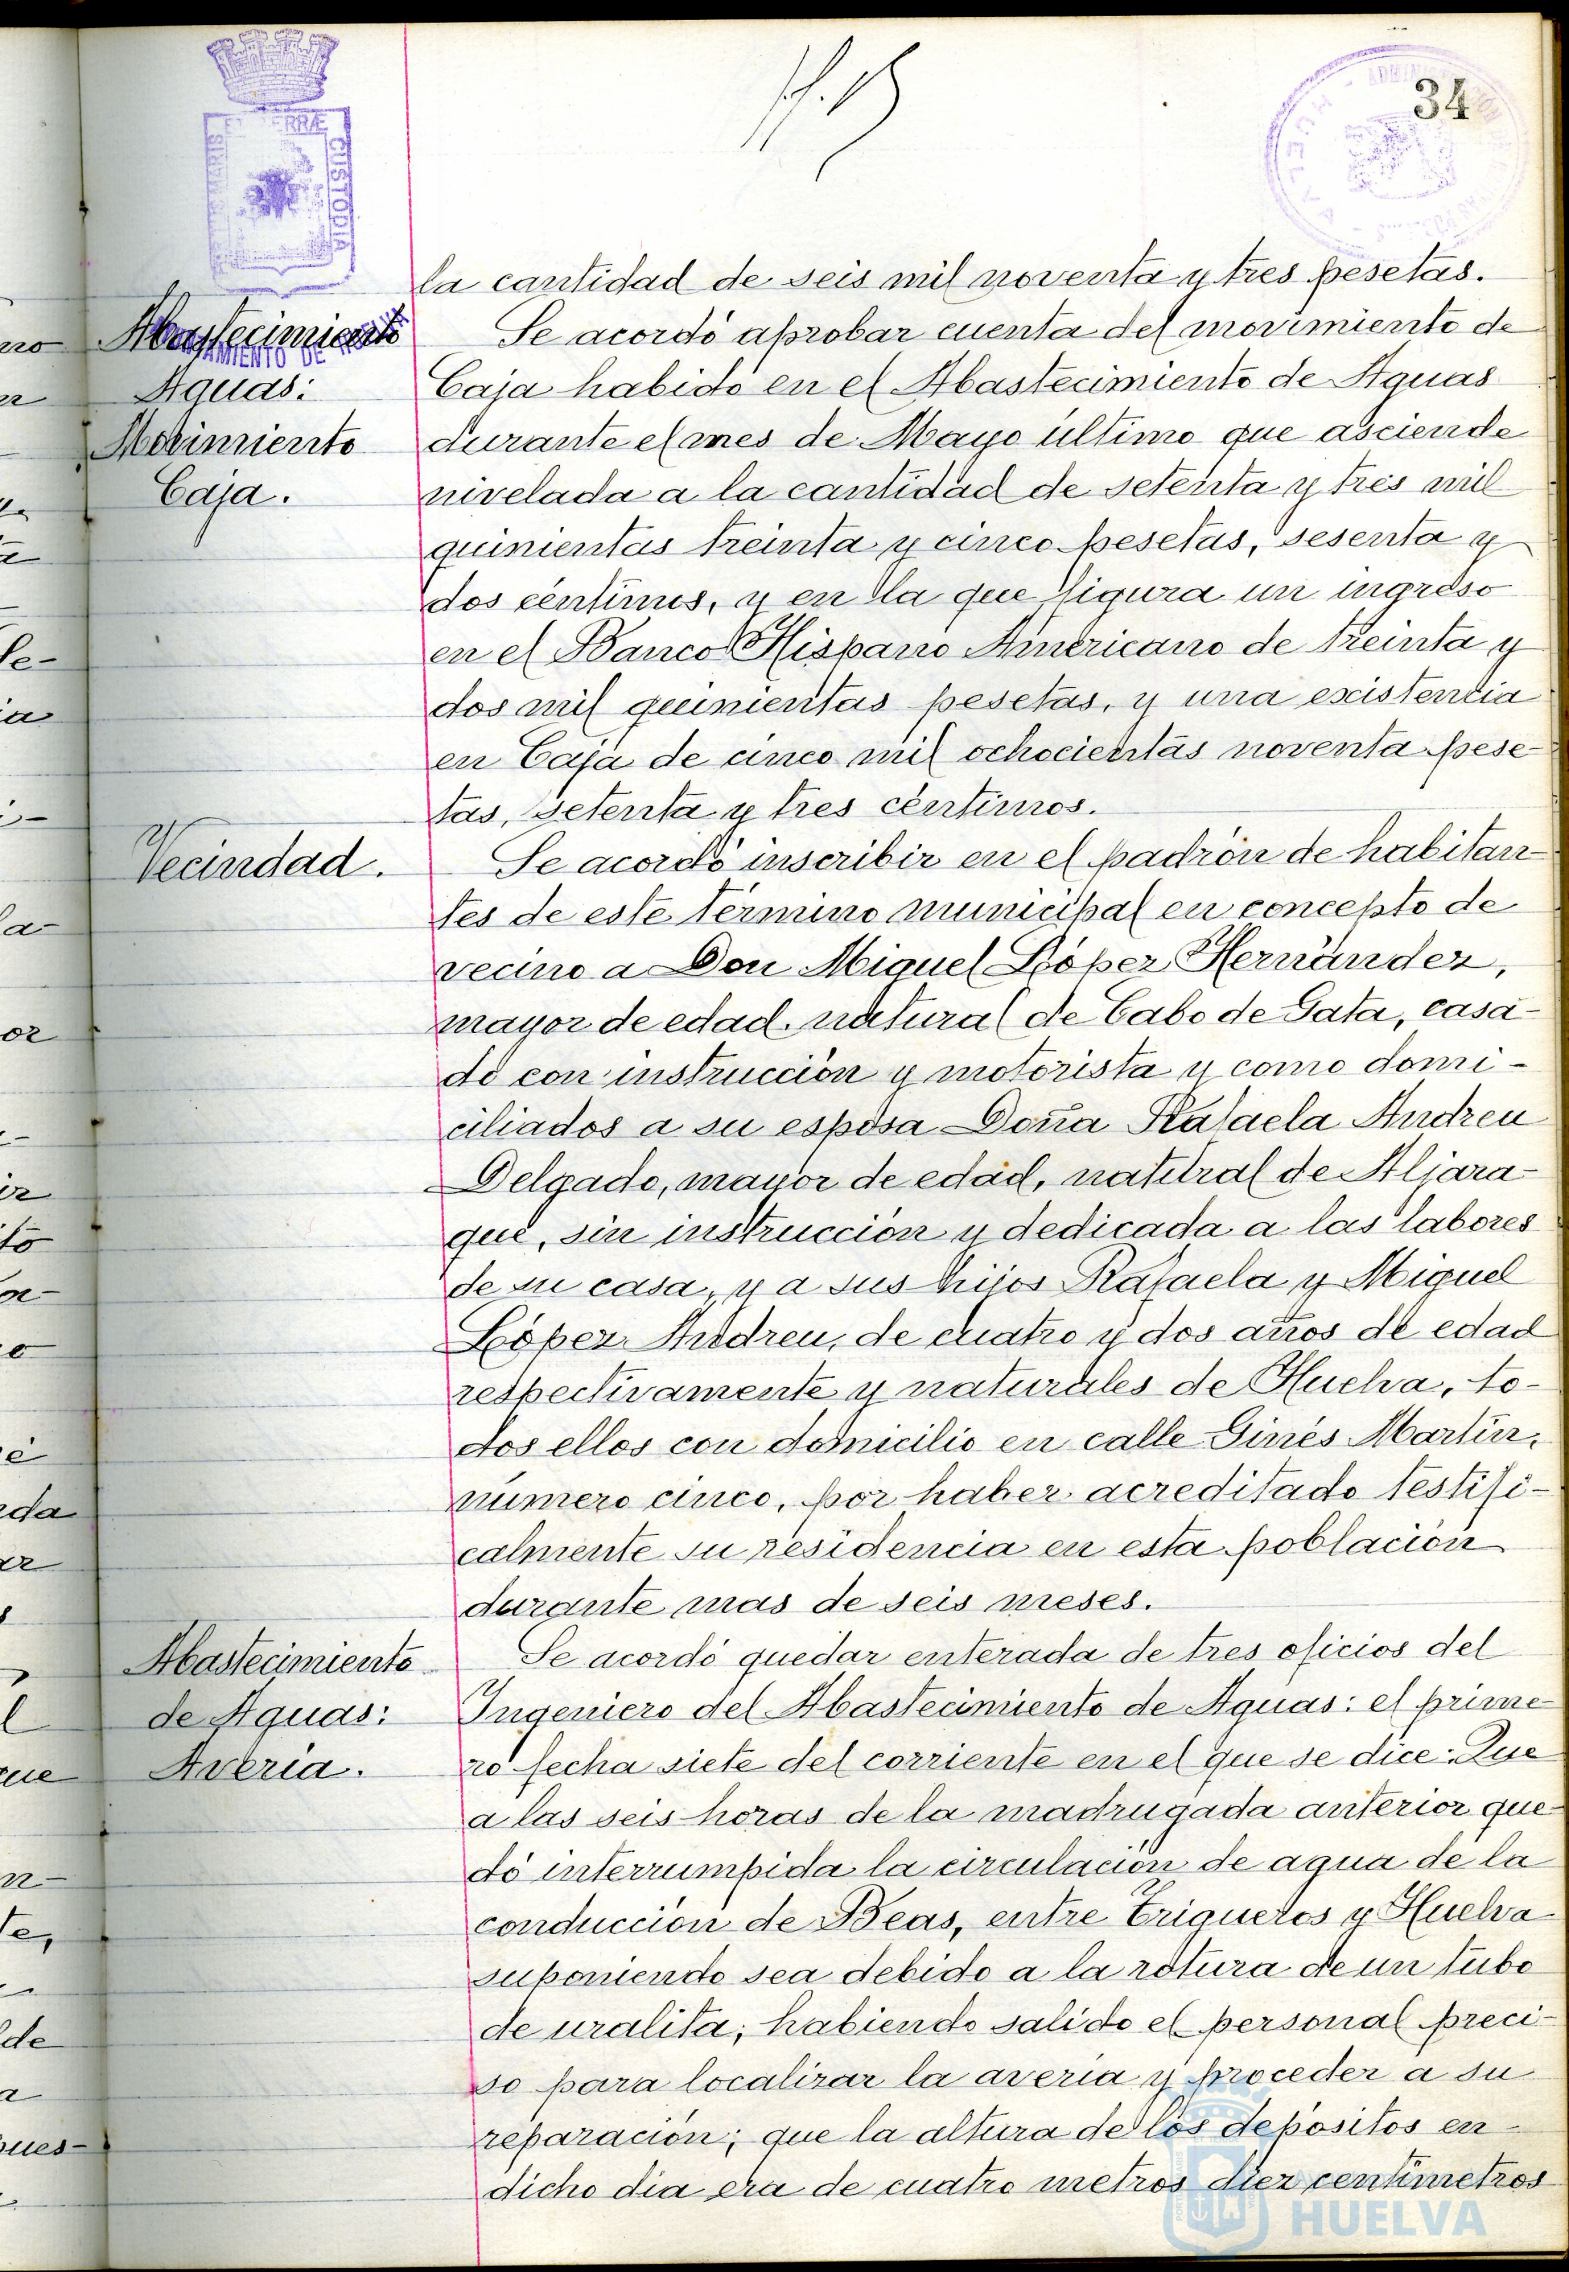 34
la cantidad de seis mil noventa y tres pesetas.
Abastecimiento
Aguas:
Movimiento
Caja.
Se acordó aprobar cuenta del movimiento de
Caja habido en el Abastecimiento de Aguas
durante el mes de Mayo último que asciende
nivelada a la cantidad de setenta y tres mil
quinientas treinta y cinco pesetas, sesenta y
dos céntimos, y en la que figura un ingreso
en el Banco Hispano Americano de treinta y
dos mil quinientas pesetas, y una existencia
en Caja de cinco mil ochocientas noventa pese-
tas, setenta y tres céntimos.
Vecindad.
Se acordó inscribir en el padrón de habitan-
tes de este término municipal en concepto de
vecino a Don Miguel López Hernández,
mayor de edad, natural de Cabo de Gata, casa-
do con instrucción y motorista y como domi-
ciliados a su esposa Doña Rafaela Andreu
Delgado, mayor de edad, natural de Aljara-
que, sin instrucción y dedicada a las labores
de su casa, y a sus hijos Rafaela y Miguel
López Andreu, de cuatro y dos años de edad
respectivamente y naturales de Huelva, to-
dos ellos con domicilio en calle Ginés Martín,
número cinco, por haber acreditado testifi-
calmente su residencia en esta población
durante mas de seis meses.
Abastecimiento
de Aguas:
Avería.
Se acordó quedar enterada de tres oficios del
Ingeniero del Abastecimiento de Aguas: el prime-
ro fecha siete del corriente en el que se dice: Que
a las seis horas de la madrugada anterior que-
dó interrumpida la circulación de agua de la
conducción de Beas, entre Trigueros y Huelva
suponiendo sea debido a la rotura de un tubo
de uralita; habiendo salido el personal preci-
so para localizar la avería y proceder a su
reparación; que la altura de los depósitos en
dicho día era de cuatro metros diez centímetros
HUELVA